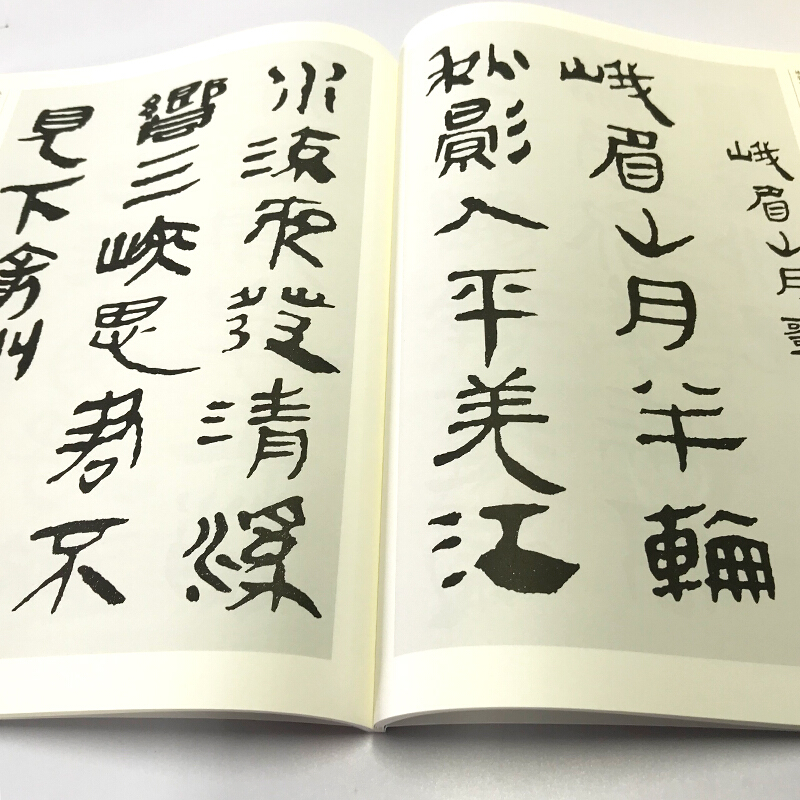 峨眉山月哥
峨眉山月半輪
秋影入平羌江
水流夜發清溪
嚮三峽思君不
見下渝州